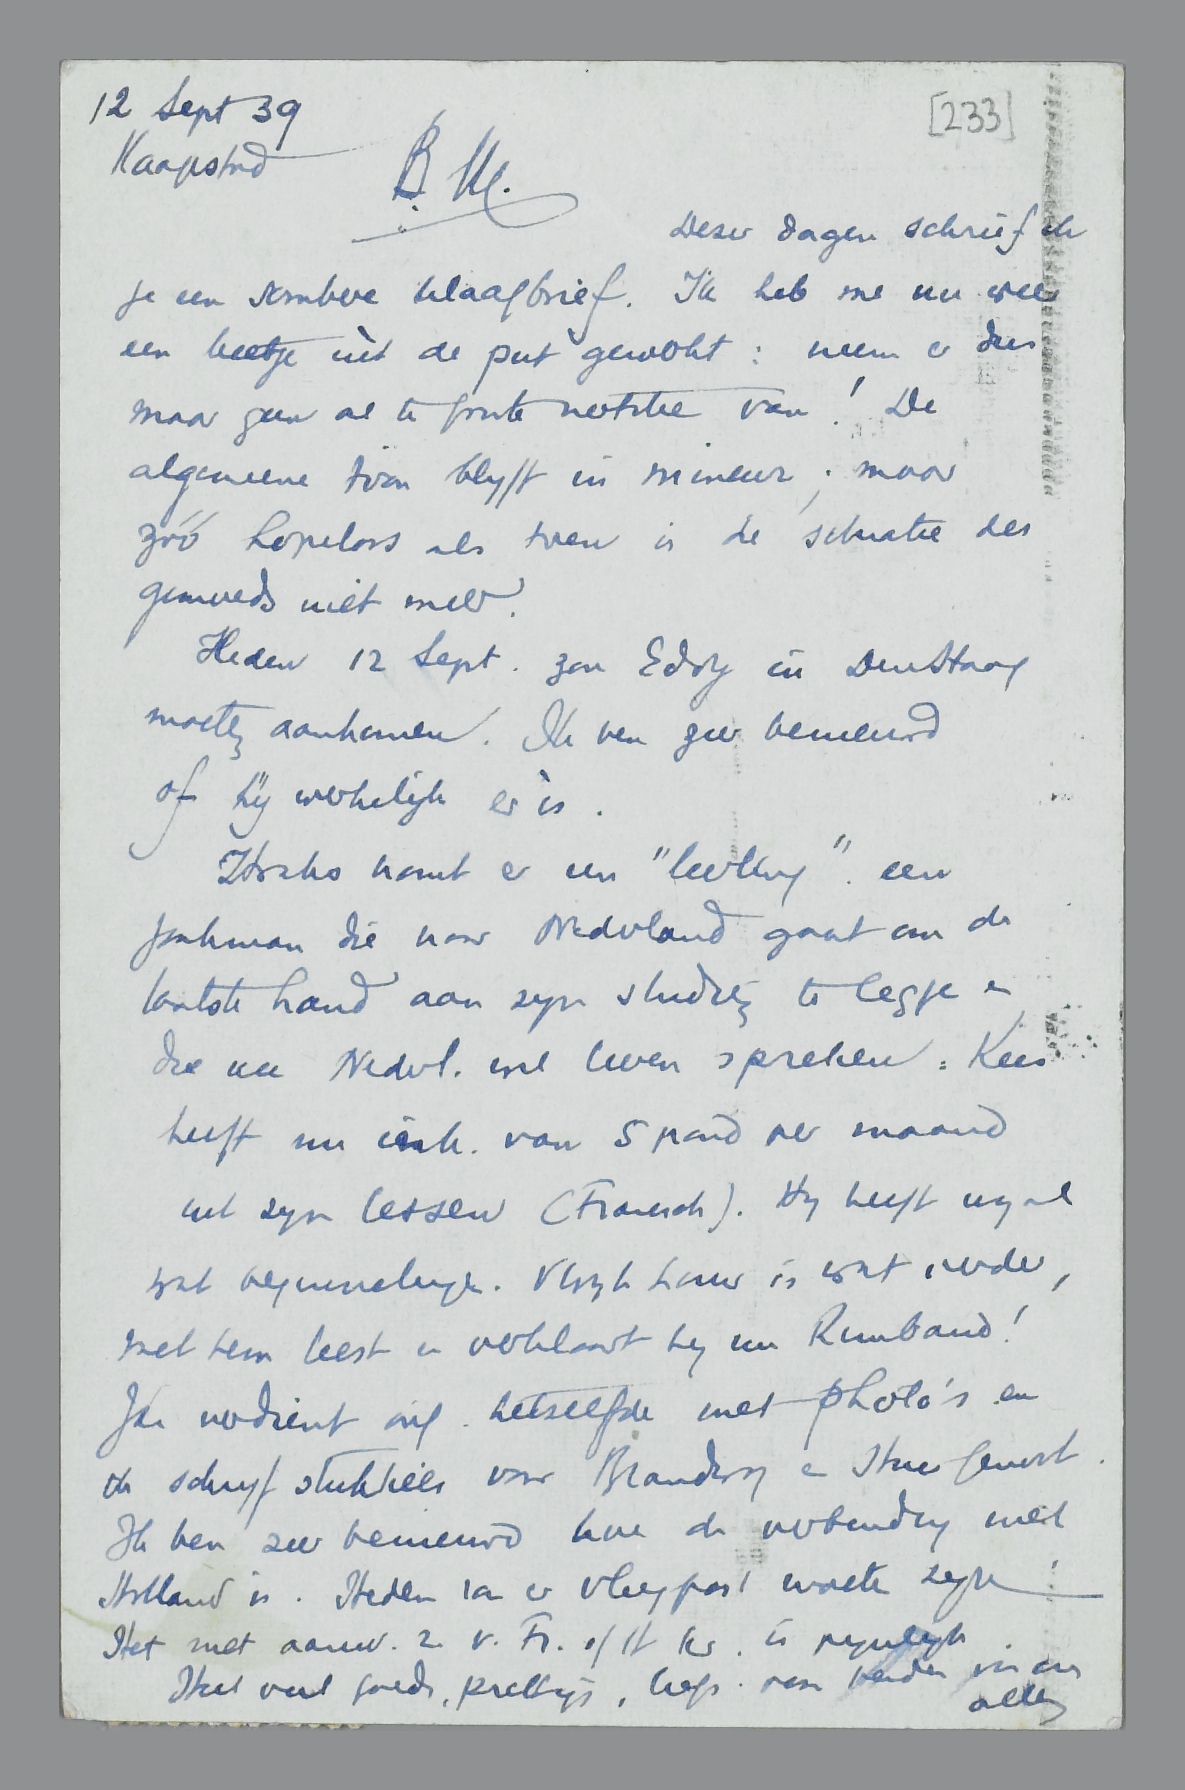 12 Sept 39
[233]
Kaapstad
B M.
Dezer dagen schrijf ik
je een sombere klaagbrief. Ik heb me nu weer
een beetje uit de put gewerkt : neem er dus
maar geen al te groote notitie van ! De
algemeene toon blijft in mineur ; maar
zóó hopeloos als toen is de situatie des
gemoeds niet meer.
Heden 12 Sept. zou Eddy in Den Haag
moeten aankomen. Ik ben zeer benieuwd
of hij werkelijk er is.
Straks komt er een "leerling". een
man die naar Nederland gaat om de
laatste hand aan zijn studiën te leggen en
die nu Nederl. wil leeren spreken : Kees
heeft nu ink. van 5 pond per maand
uit zijn lessen (Fransch). Hij heeft nog al
wat beginnelingen. is wat verder,
met hem leest en verklaart hij nu Rimbaud !
Jan verdient ong. hetzelfde met photo's en
ik schrijf stukkies voor Brandwag en Huisgenoot.
Ik ben zeer benieuwd hoe de verbinding met
Holland is. Heden zou er vliegpost moeten zijn !
Het niet aanw. z. v. Fr. of H. Kr. is pijnlijk.
Heel veel goeds, prettigs, liefs. van beiden voor
allen